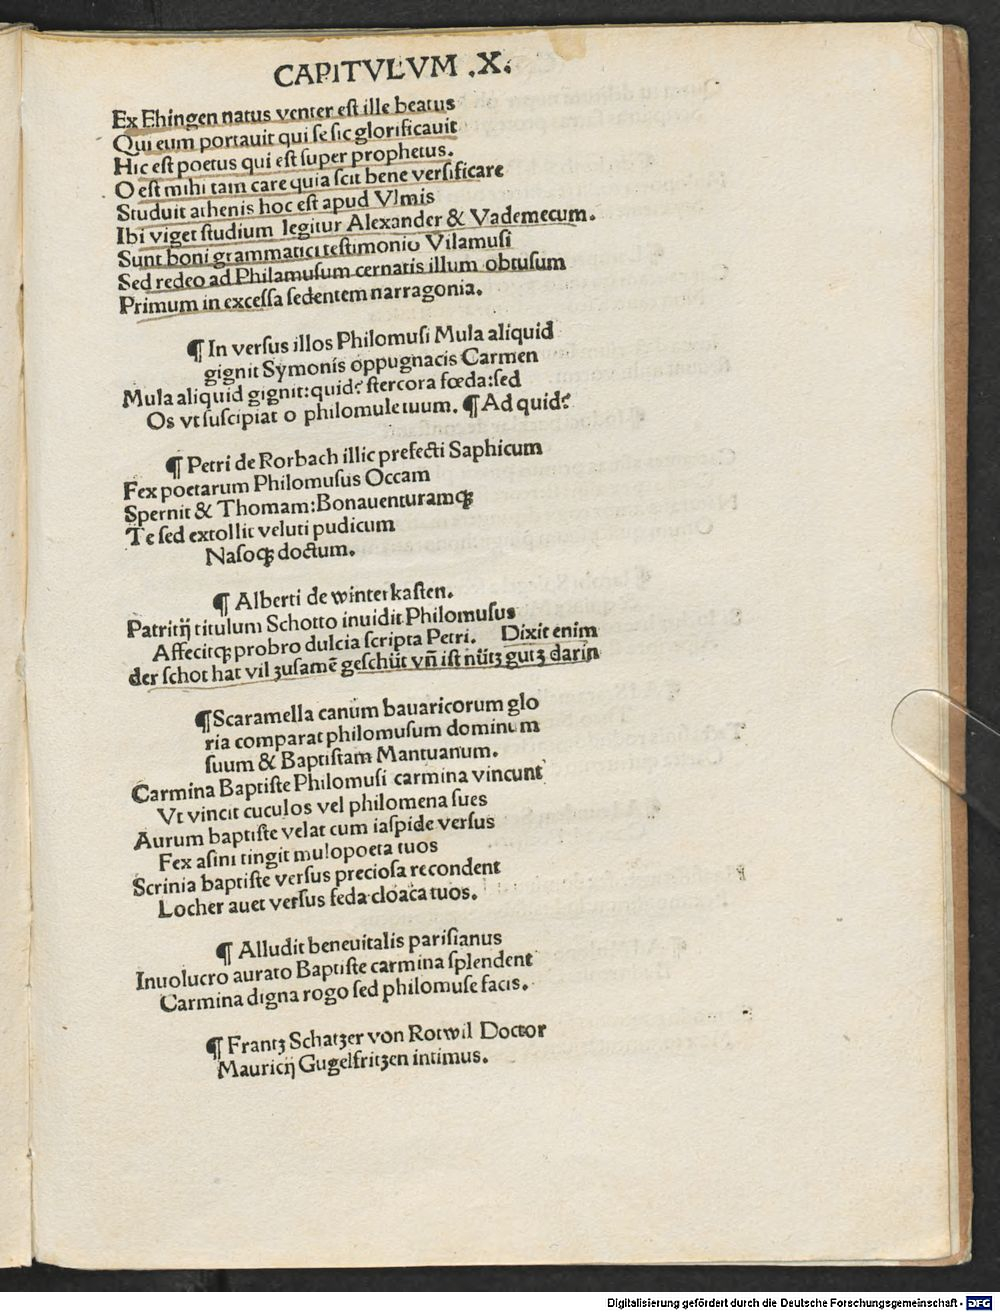 CAPITVLVM .X.
Ex Ehingen natus venter est ille beatus
Qui eum portauit qui se sic glorificauit
Hic est poetus qui est super prophetus.
O est mihi tam care quia scit bene versificare
Studuit athenis hoc est apud Vlmis
Ibi viget studium legitur Alexander & Vademecum.
Sunt boni grammatici testimonio Vilamusi
Sed redeo ad Philamusum cernatis illum obtusum
Primum in excessa sedentem narragonia.
¶ In versus illos Philomusi Mula aliquid
gignit Symonis oppugnacis Carmen
Mula aliquid gignit: quid? stercora fœda: sed
Os vt suscipiat o philomule tuum. ¶ Ad quid?
¶ Petri de Rorbach illic prefecti Saphicum
Fex poetarum Philomusus Occam
Spernit & Thomam: Bonauenturamqꝫ
Te sed extollit veluti pudicum
Nasoqꝫ doctum.
¶ Alberti de winterkasten.
Patritij titulum Schotto inuidit Philomusus
Affecitqꝫ probro dulcia scripta Petri. Dixit enim
der schot hat vil zusamē geschüt vñ ist nütz gutz darin
¶ Scaramella canum bauaricorum glo
ria comparat philomusum dominum
suum & Baptistam Mantuanum.
Carmina Baptiste Philomusi carmina vincunt
Vt vincit cuculos vel philomena sues
Aurum baptiste velat cum iaspide versus
Fex asini tingit mulopoeta tuos
Scrinia baptiste versus preciosa recondent
Locher auet versus feda cloaca tuos.
¶ Alludit beneuitalis parisianus
Inuolucro aurato Baptiste carmina splendent
Carmina digna rogo sed philomuse facis.
¶ Frantz Schatzer von Rotwil Doctor
Mauricij Gugelfritzen intimus.
Digitalisierung gefördert durch die Deutsche Forschungsgemeinschaft - DFG